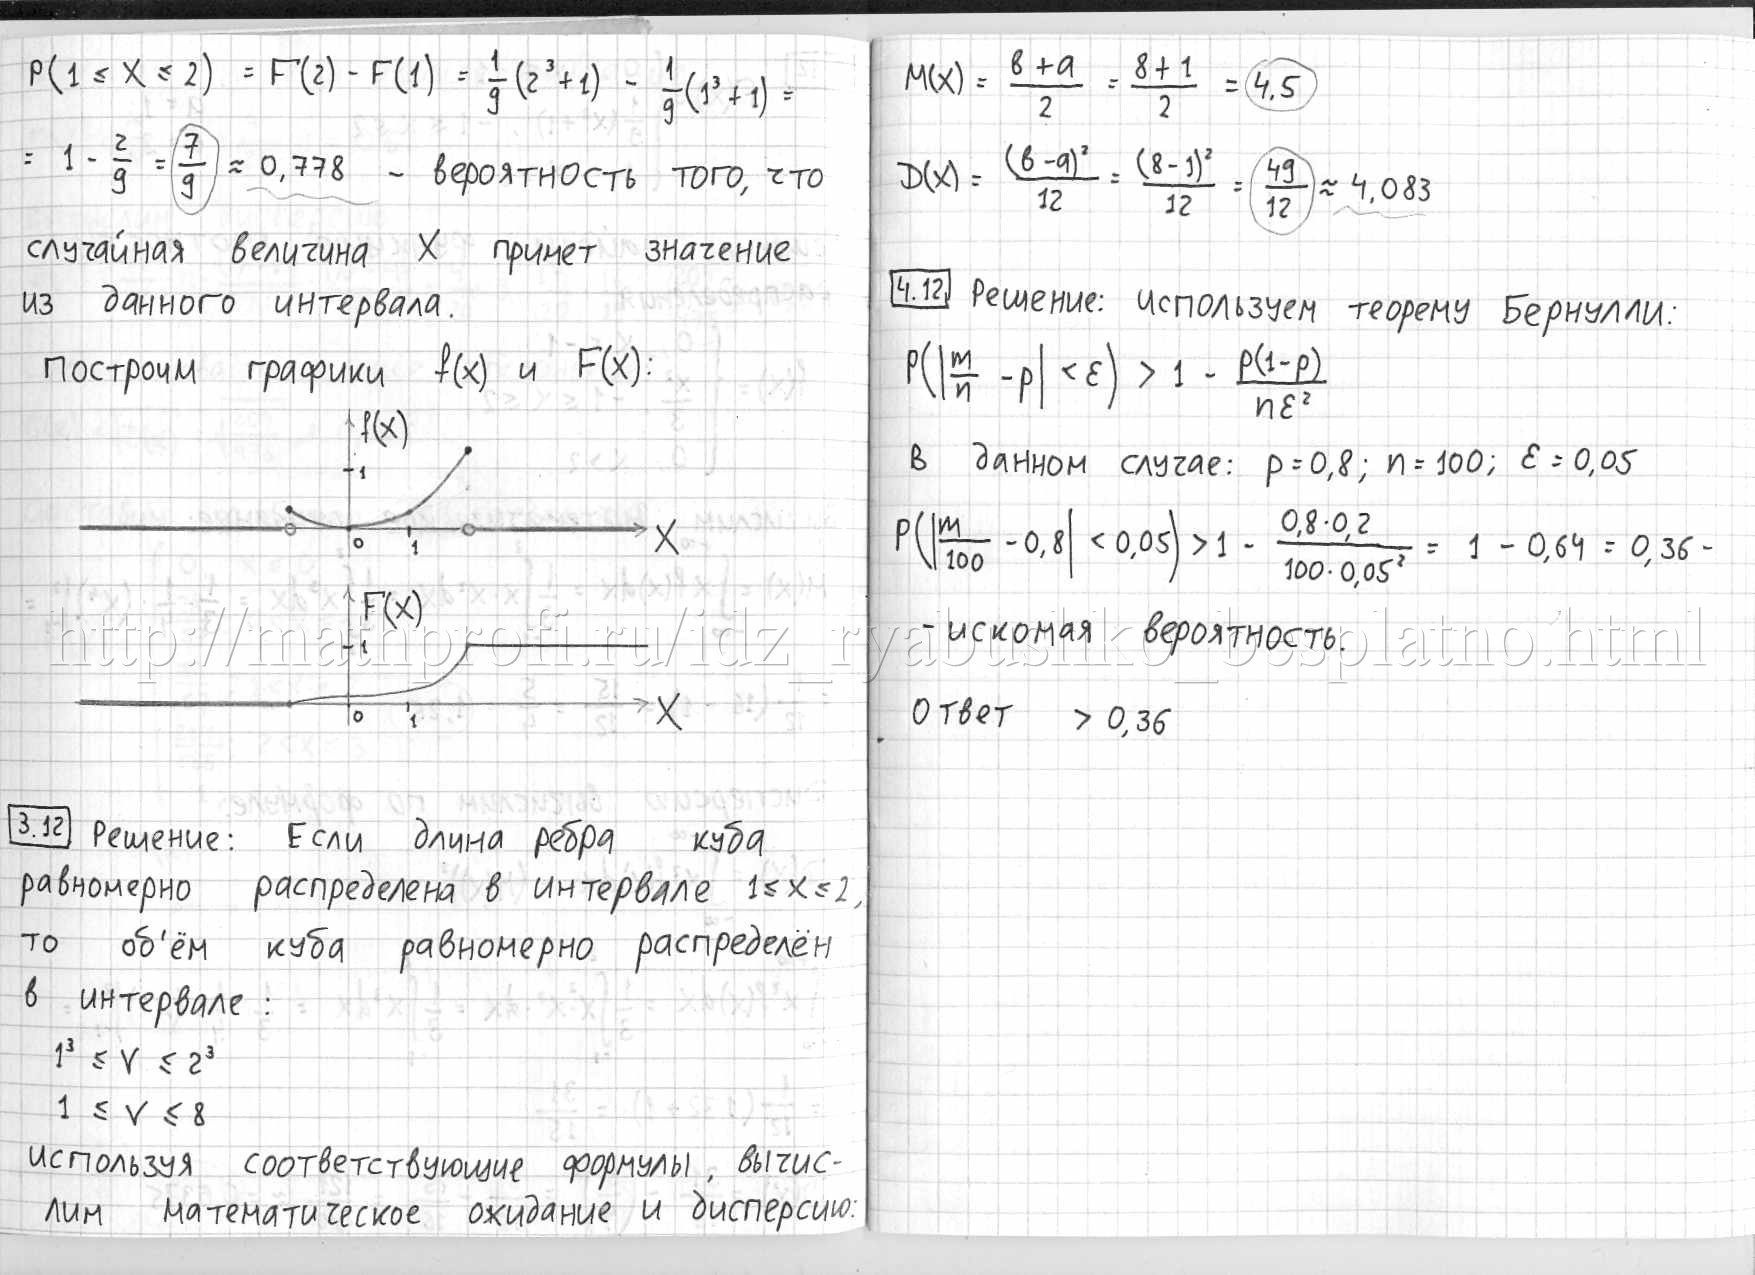 P(1 ≤ X ≤ 2) = F(2) - F(1) = 1/9 (2³+1) - 1/9 (1³+1) =
= 1 - 2/9 = 7/9 ≈ 0,778 - вероятность того, что
случайная величина X примет значение
из данного интервала.
Построим графики f(x) и F(x):
f(x)
1
0 1 X
F(x)
1
0 1 X
3.12 Решение: Если длина ребра куба
равномерно распределена в интервале 1 ≤ x ≤ 2,
то об'ём куба равномерно распределён
в интервале:
1³ ≤ V ≤ 2³
1 ≤ V ≤ 8
Используя соответствующие формулы, вычис-
лим математическое ожидание и дисперсию:
M(X) = (в+а)/2 = (8+1)/2 = 4,5
D(X) = (в-а)²/12 = (8-1)²/12 = 49/12 ≈ 4,083
4.12 Решение: используем теорему Бернулли:
P(|m/n - p| < ε) > 1 - p(1-p)/nε²
В данном случае: p=0,8; n=100; ε=0,05
P(|m/100 - 0,8| < 0,05) > 1 - 0,8·0,2/100·0,05² = 1 - 0,64 = 0,36 -
- искомая вероятность.
Ответ > 0,36
http://mathprofi.ru/idz_ryabushko_besplatno.html